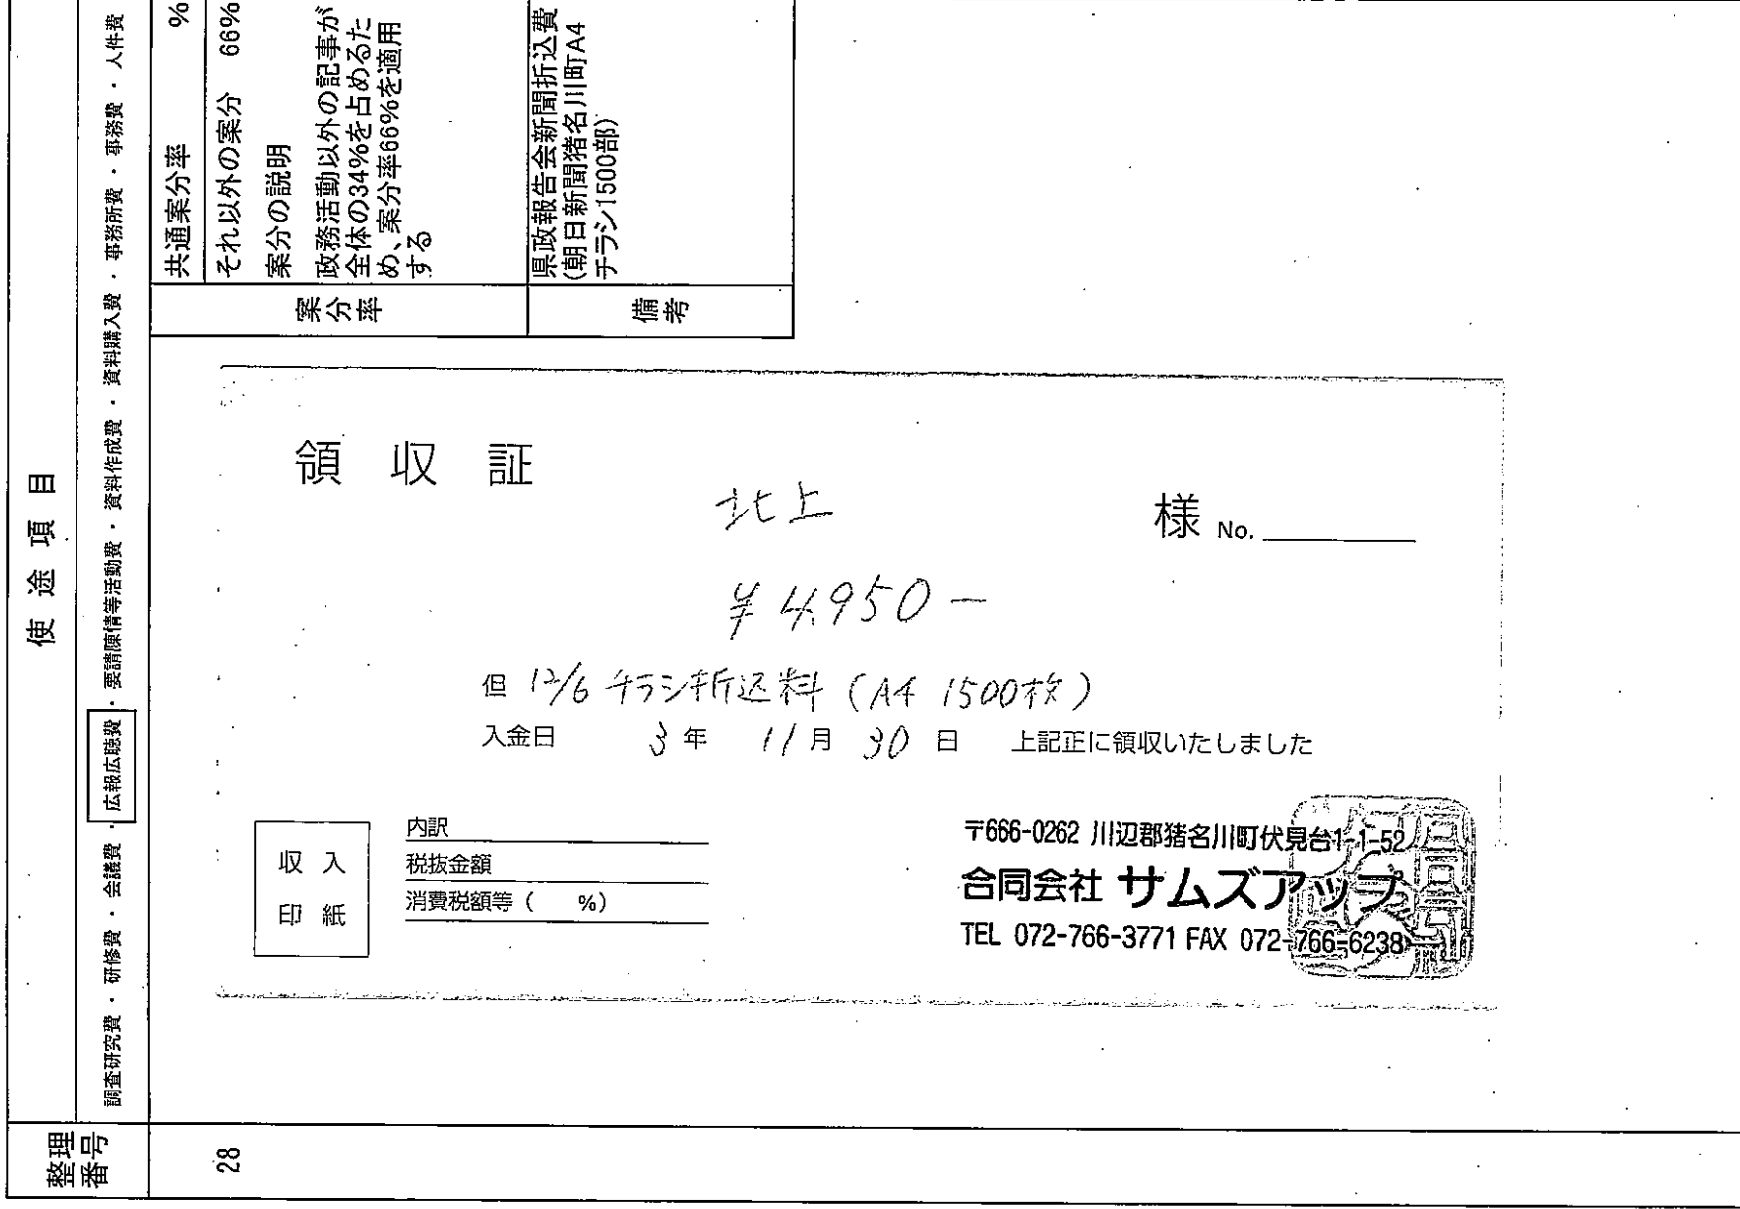 使途項目
調査研究費・研修費・会議費・広報広聴費・要請陳情等活動費・資料作成費・資料購入費・事務所費・事務費・人件費
整理
番号
28
案分率
共通案分率 %
それ以外の案分 66%
案分の説明
政務活動以外の記事が
全体の34%を占めるた
め、案分率66%を適用
する
備考
県政報告会新聞折込費
(朝日新聞猪名川町A4
チラシ1500部)
領収証
北上 様 No.
¥4,950-
但 12/6 チラシ折込料 (A4 1500枚)
入金日 3年 11月 30日 上記正に領収いたしました
収入
印紙
内訳
税抜金額
消費税額等( %)
〒666-0262 川辺郡猪名川町伏見台1-1-52
合同会社 サムズアップ
TEL 072-766-3771 FAX 072-766-6238